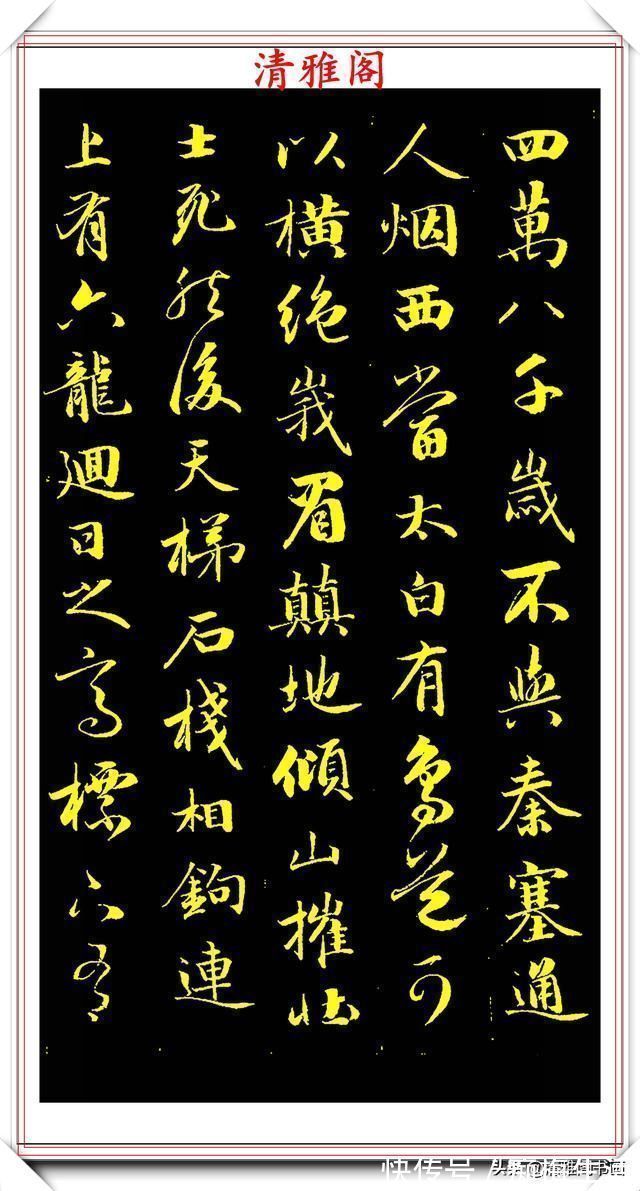 清雅阁
四萬八千歲不與秦塞通
人烟西當太白有鳥道可
以橫絕峩眉顛地傾山摧壯
士死然後天梯石棧相鉤連
上有六龍迴日之高標下有
快传号
头条@清雅阁书画